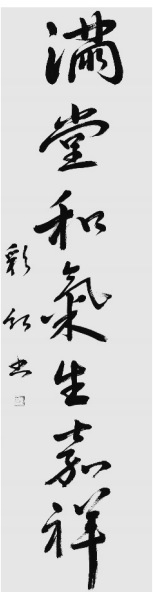 滿堂和氣生嘉祥
彩紅书